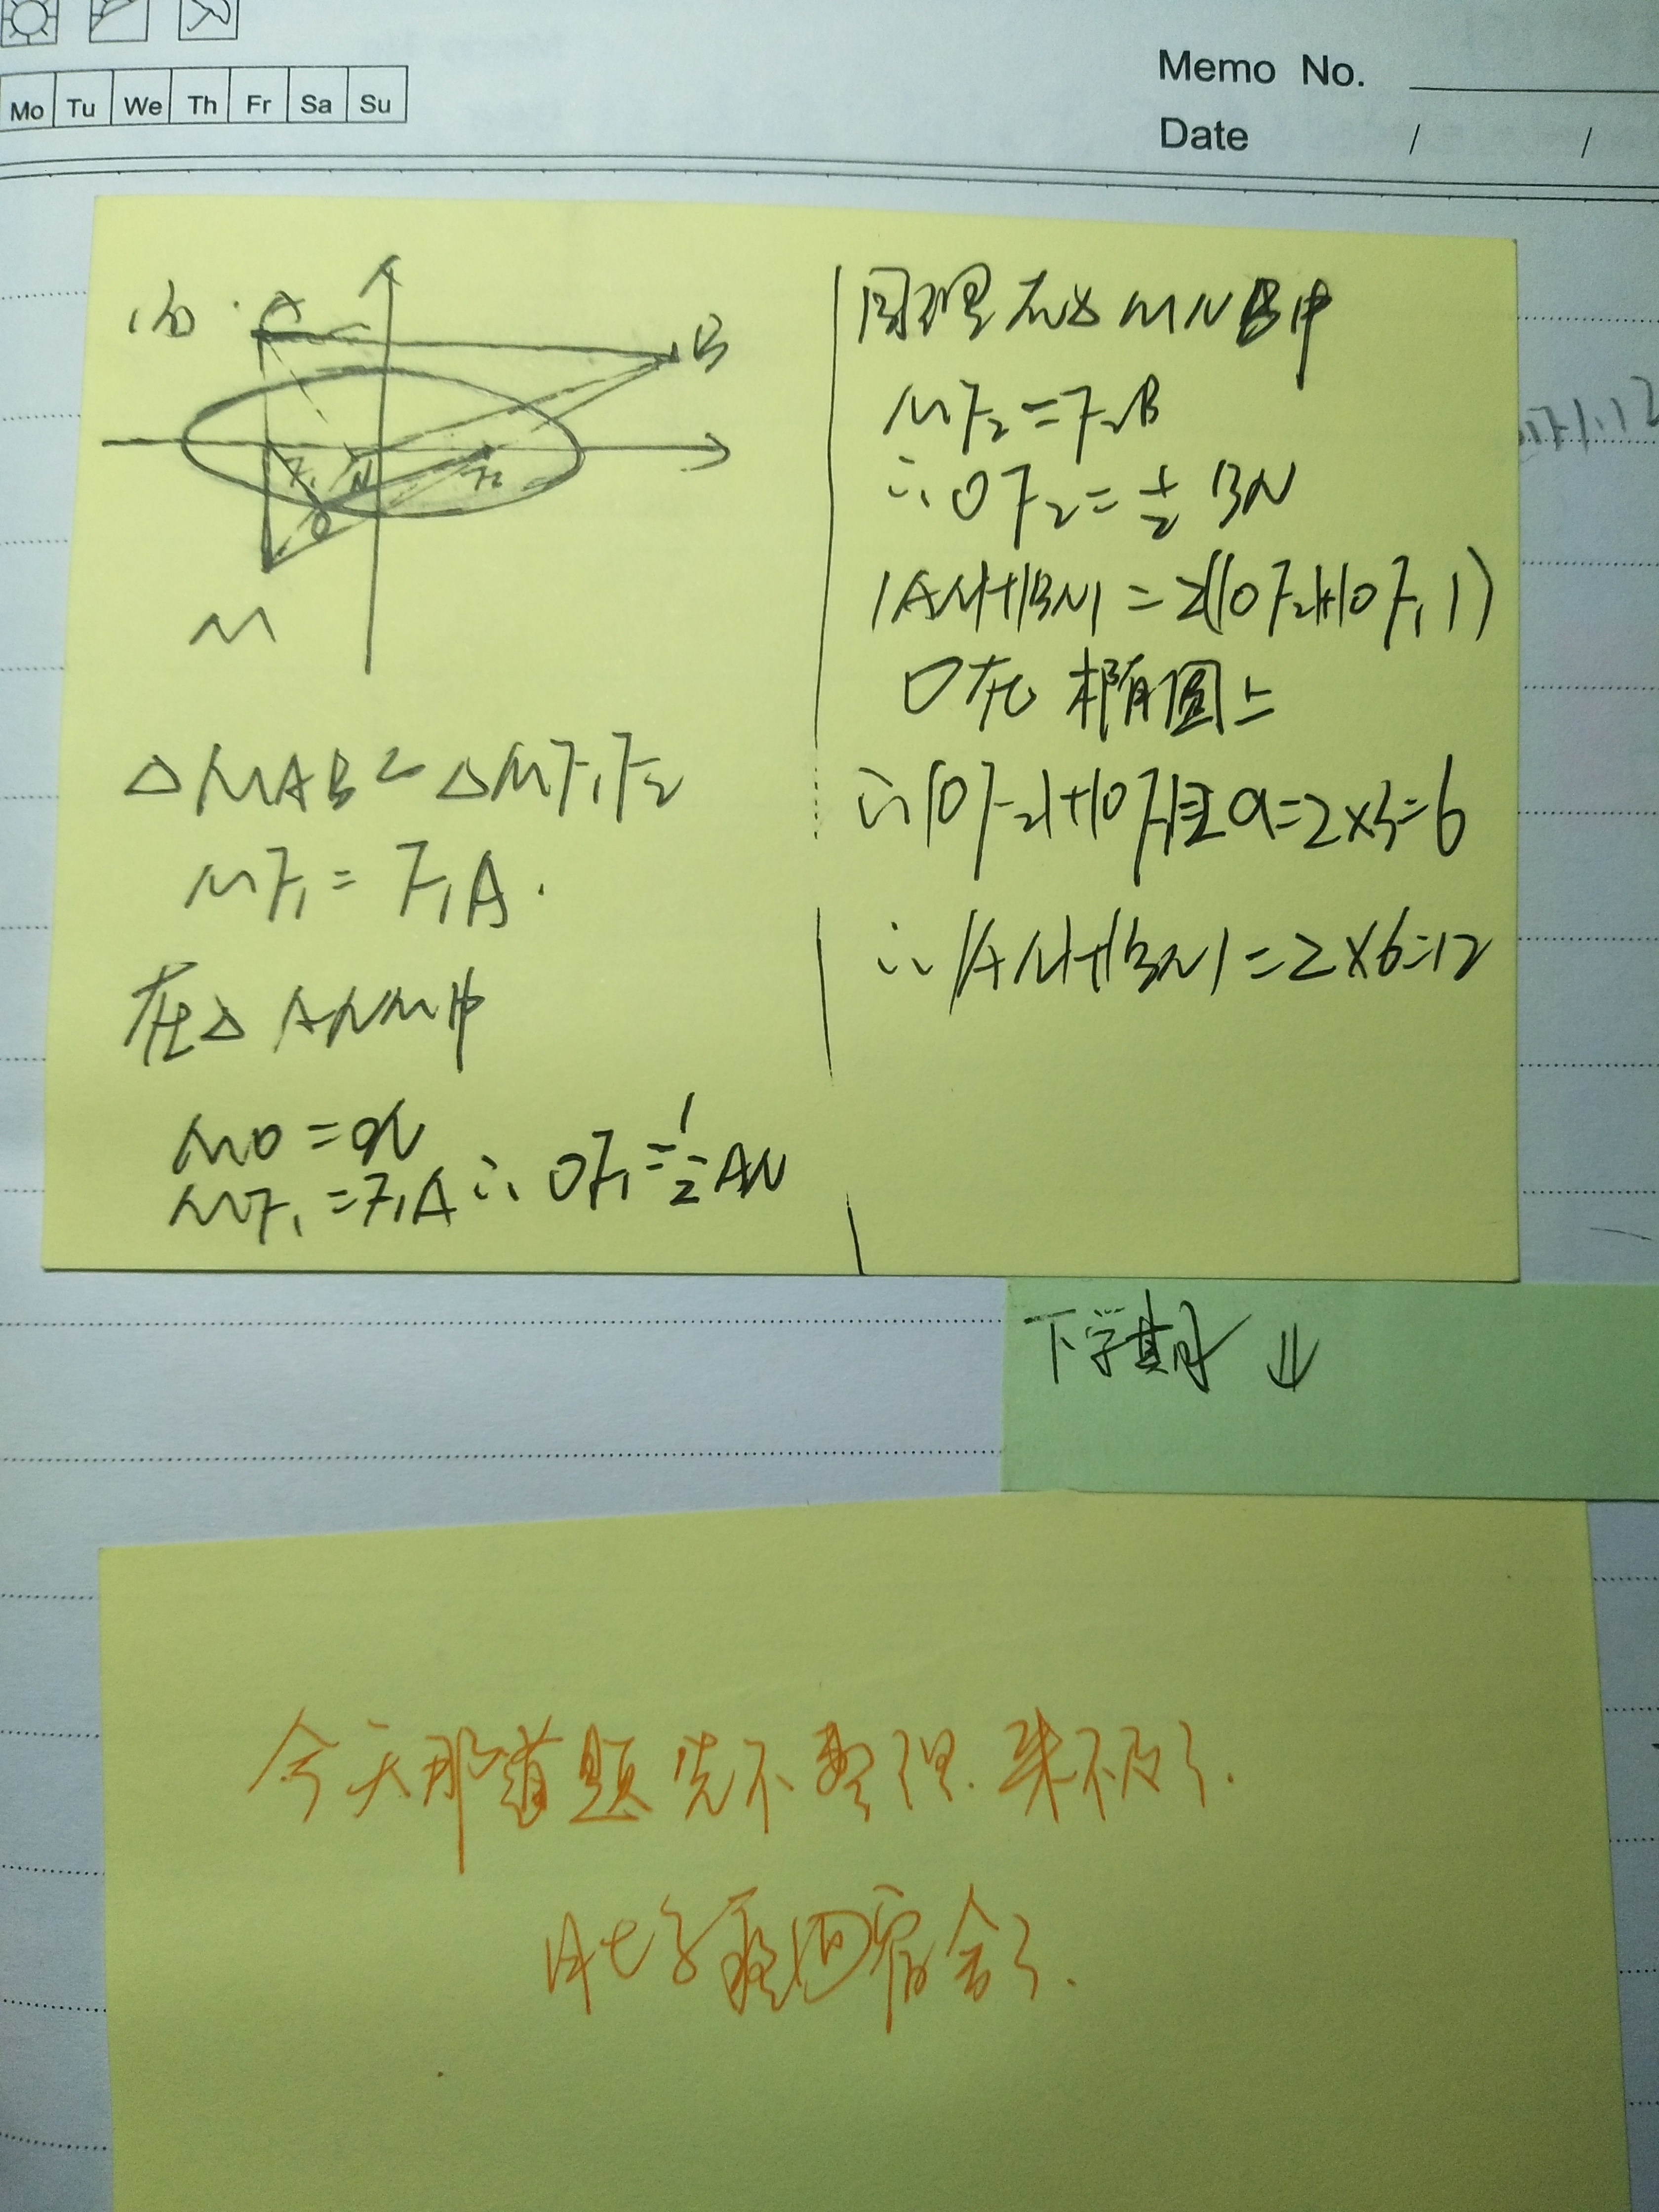 Mo Tu We Th Fr Sa Su
Memo No.
Date / /
16.
A
B
F₁ N F₂
O
M
△MAB∽△MF₁F₂
MF₁=F₁A.
在△ANM中
MO=ON
MF₁=F₁A∴OF₁=½AN
同理在△MNB中
MF₂=F₂B
∴OF₂=½BN
|AN|+|BN|=2(|OF₂|+|OF₁|)
O在椭圆上
∴|OF₂|+|OF₁|=2a=2×3=6
∴|AN|+|BN|=2×6=12
下学期 ↓
今天那道题先不整理.来不及了.
回宿舍了.